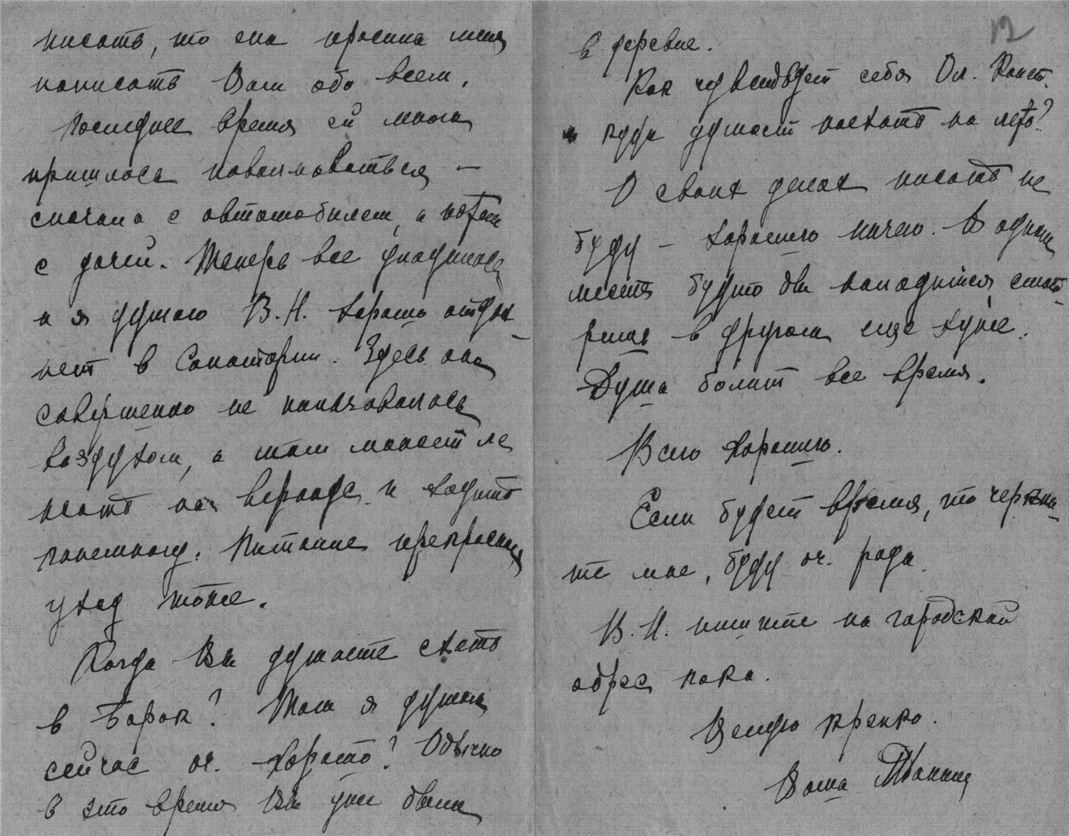 писать, то она просила меня
написать Вам обо всем.
Последнее время ей много
пришлось поволноваться –
сначала с автомобилем, а потом
с дачей. Теперь все уладилось
и я думаю В.Н. хорошо отдох-
нет в Санатории. Здесь она
совершенно не пользовалась
воздухом, а там может ле
жать на веранде и ходить
понемногу. Питание прекрасное
уход тоже.
Когда Вы думаете ехать
в Борок? Там я думаю
сейчас оч. хорошо? Обычно
в это время Вы уже были
12
в деревне.
Как чувствует себя Ол. Конст.
куда думает поехать на лето?
О своих делах писать не
буду – хорошего ничего. В одном
месте будто бы наладится, смот
ришь в другом еще хуже.
Душа болит все время.
Всего хорошего.
Если будет время, то черкни-
те мне, буду оч. рада.
В.Н. пишите на городской
адрес пока.
Целую крепко.
Ваша